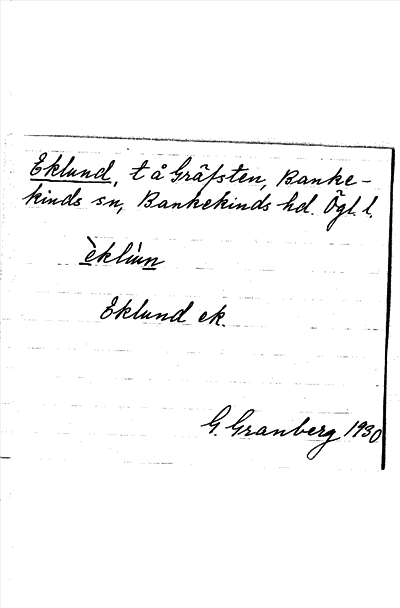 Eklund, t å Gräfsten, Banke-
kinds sn, Bankekinds hd. Ögl. l.
èklùn
Eklund ek.
G. Granberg 1930